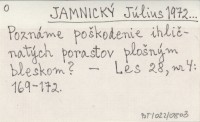 O
JAMNICKÝ Július 1972...
Poznáme poškodenie ihlič-
natých porastov plošným
bleskom? — Les 28, nr 4:
169-172.